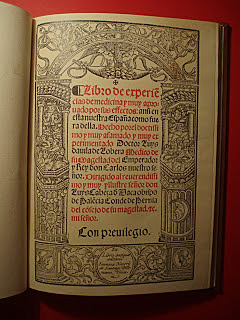 Libro de experiē
cias de medicina y muy apro
uado por sus effectos: ansi en
esta nuestra España como fue
ra della. Hecho por el doctissi
mo y muy afamado y muy ex
perimentado Doctor Luys
de Lobera Medico de
su Magestad del Emperador
y Rey don Carlos nuestro se
ñor. Dirigido al reuerendissi
mo y muy yllustre señor don
Luys Cabeça d Vaca obispo
de Palēcia Conde de Pernia
del cōsejo de su magestad. ꝛc.
mi señor.
Con preuilegio.